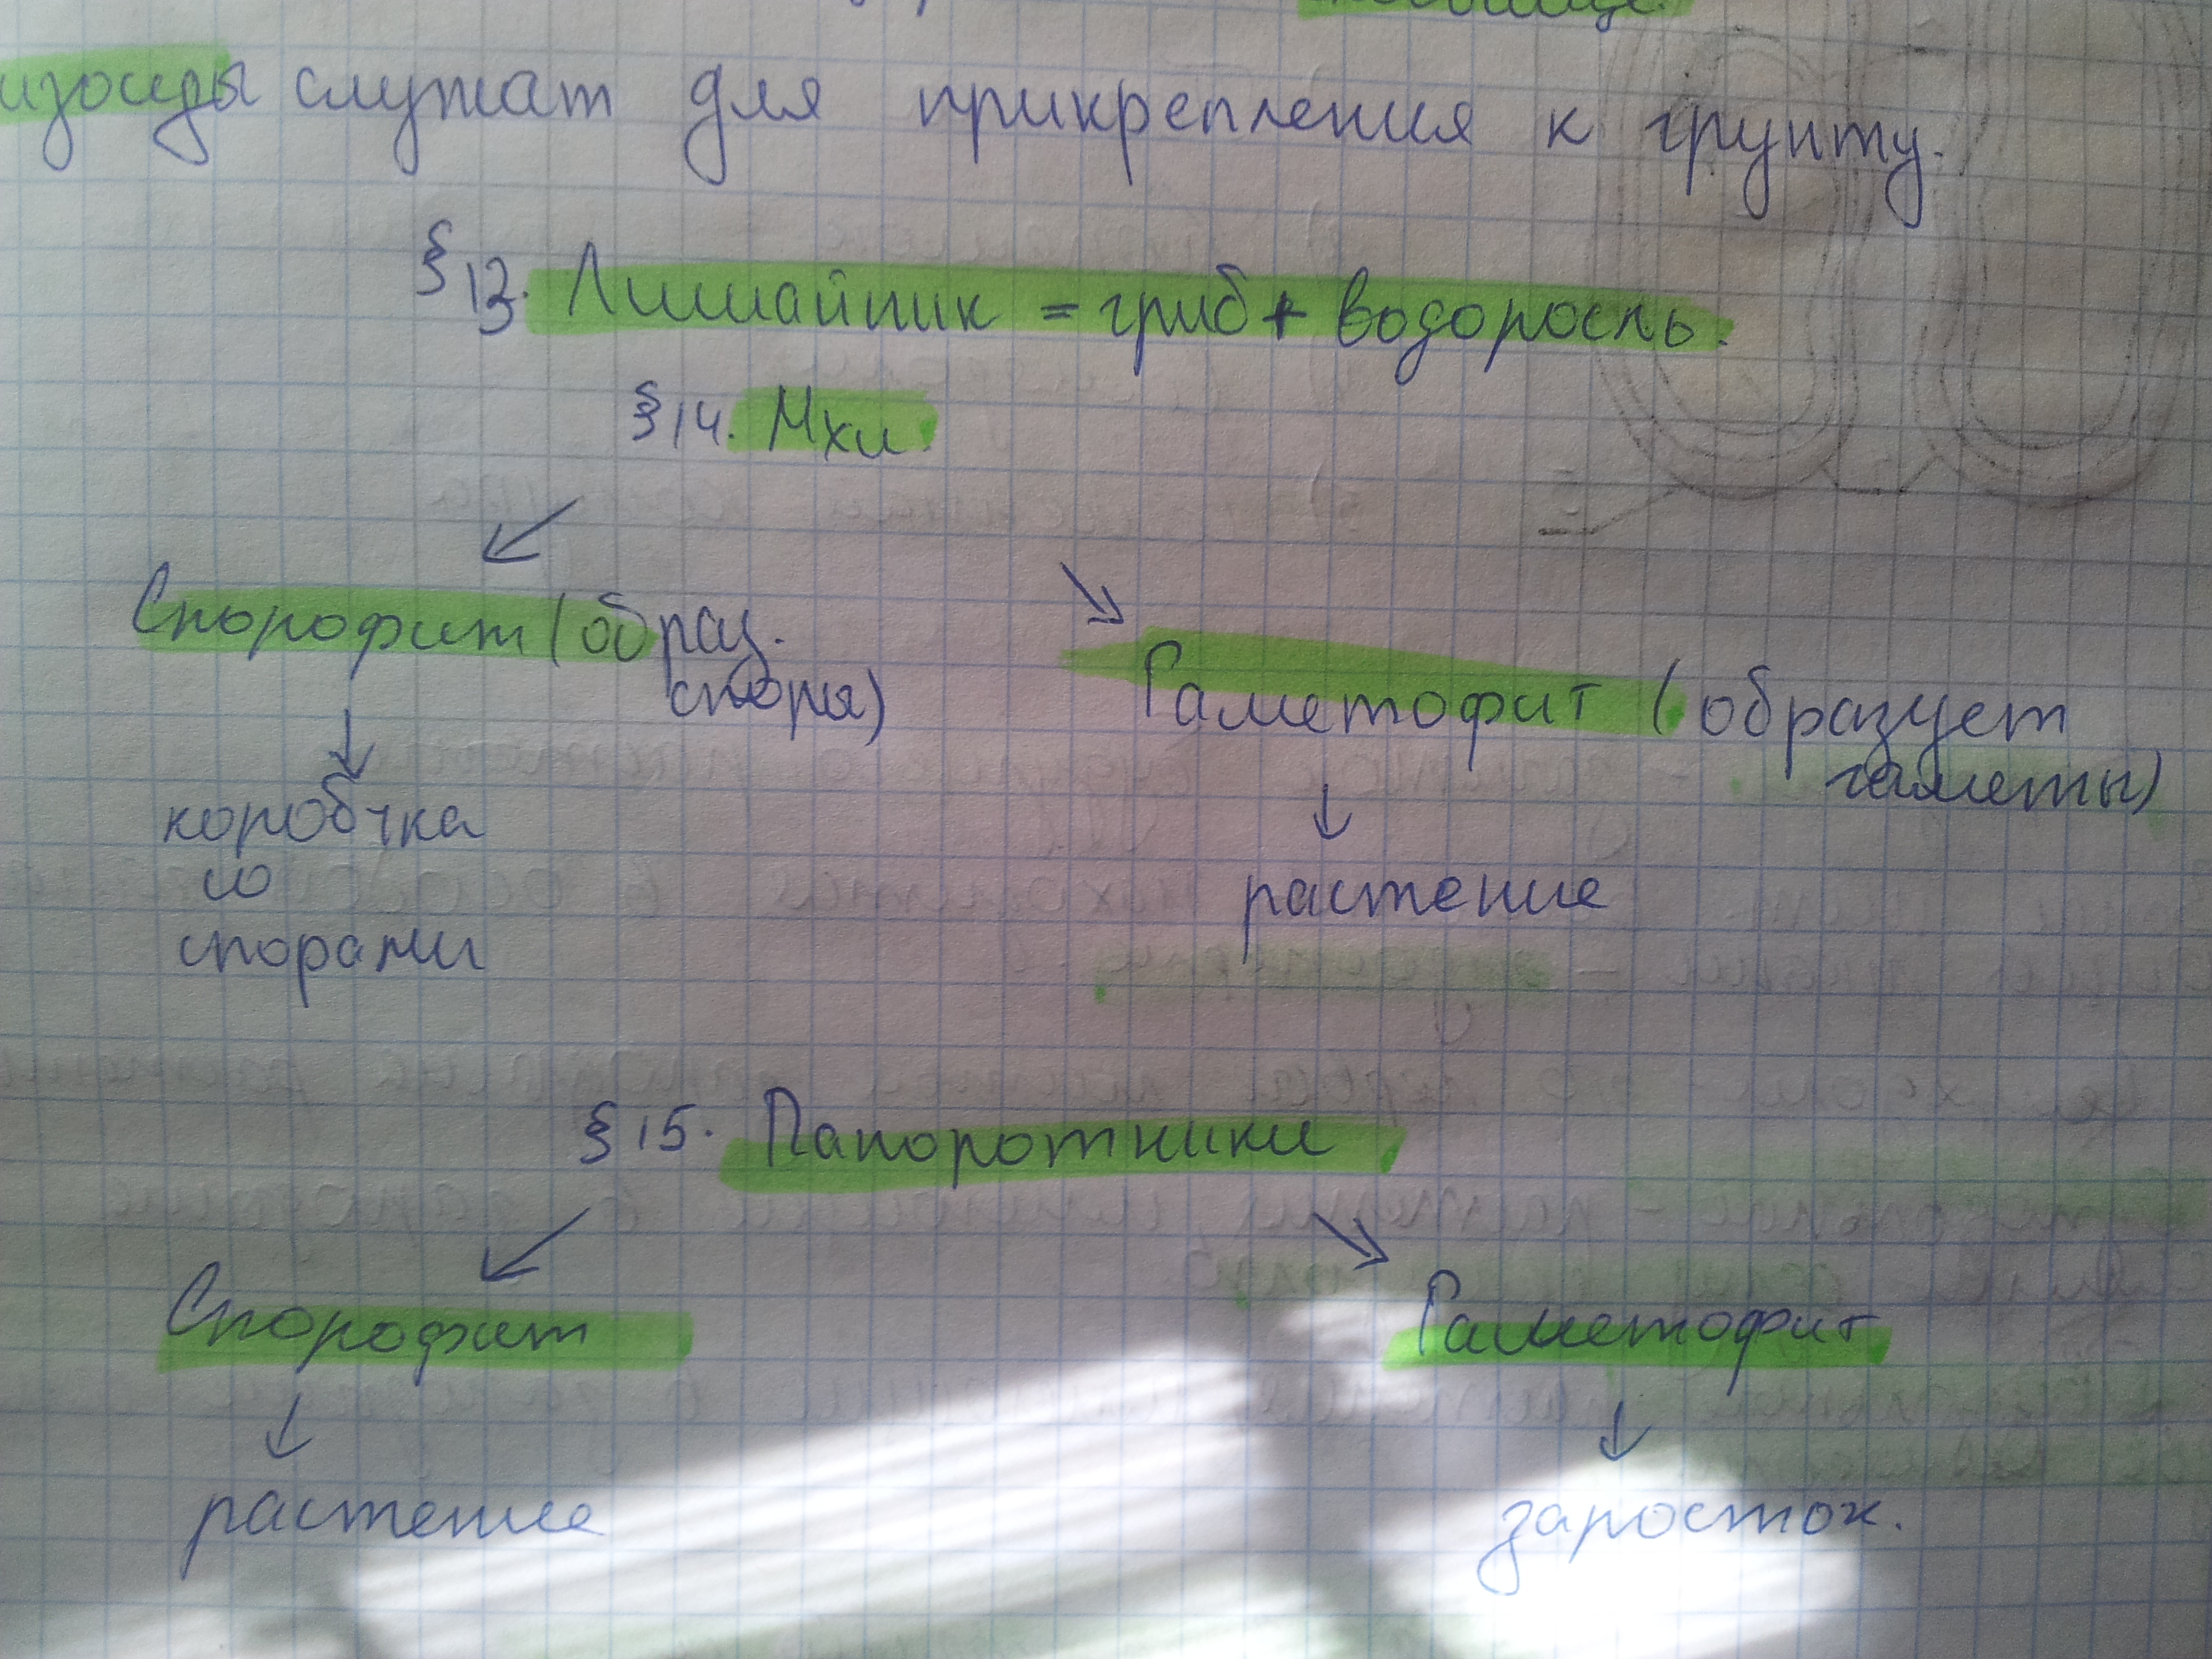 изоиды служат для прикрепления к грунту.
§ 13. Лишайник = гриб + водоросль.
§ 14. Мхи.
Спорофит (образ.
споры)
Гаметофит (образует
гаметы)
коробчка
со
спорами
растение
§ 15. Папоротники
Спорофит
Гаметофит
растение
заросток.